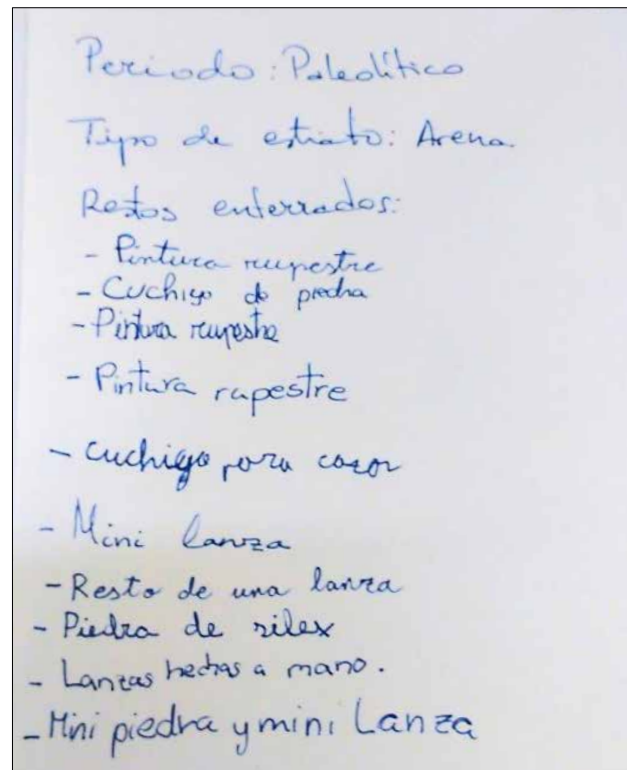 Periodo: Paleolítico
Tipo de estrato: Arena.
Restos enterrados:
- Pintura rupestre
- Cuchiyo de piedra
- Pintura rupestre
- Pintura rupestre
- Cuchiyo para cazar
- Mini lanza
- Resto de una lanza
- Piedra de silex
- Lanzas hechas a mano.
- Mini piedra y mini Lanza